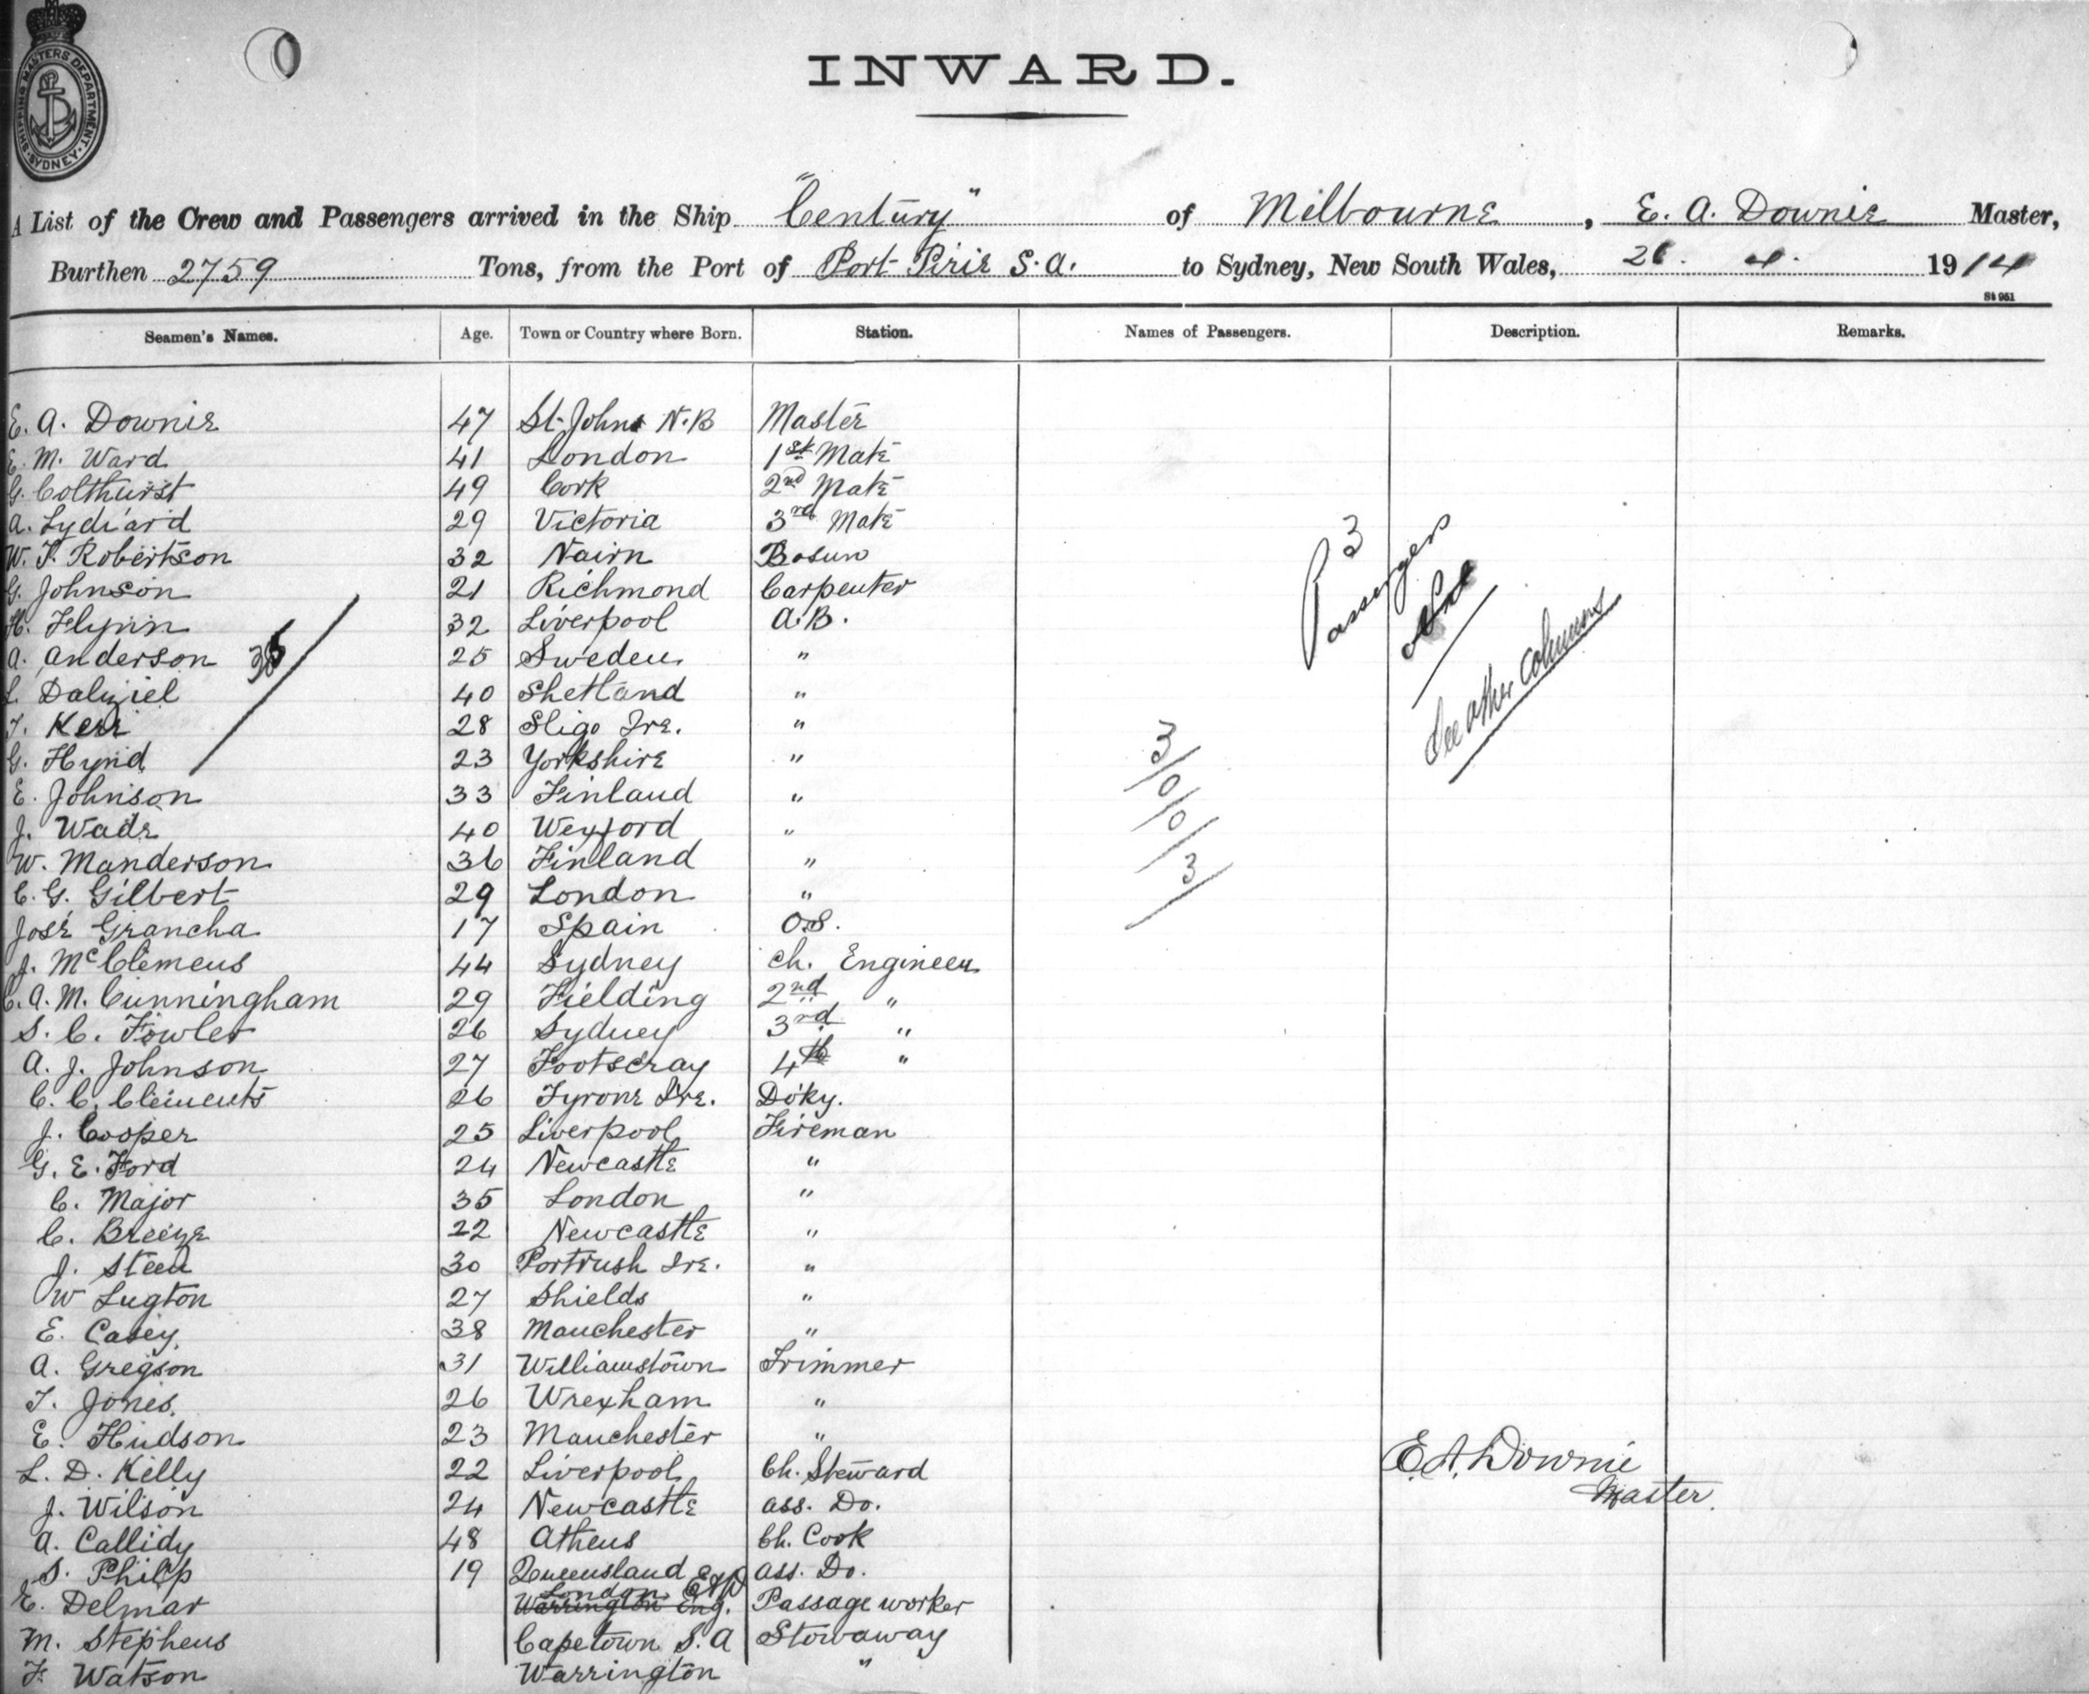 SHIPPING MASTERS DEPARTMENT. SYDNEY.
INWARD.
A List of the Crew and Passengers arrived in the Ship "Century" of Melbourne, E. A. Downie Master,
Burthen 2759 Tons, from the Port of Port Pirie S.A. to Sydney, New South Wales, 26. 4. 1914
St 951
Seamen's Names. Age. Town or Country where Born. Station. Names of Passengers. Description. Remarks.
E. A. Downie 47 St. Johns N.B Master
E. M. Ward 41 London 1st Mate
G. Colthurst 49 Cork 2nd Mate
A. Lydiard 29 Victoria 3rd Mate
W. T. Robertson 32 Nairn Bosun
G. Johnson 21 Richmond Carpenter
H. Flynn 32 Liverpool A.B.
A. Anderson 25 Sweden "
L. Dalziel 40 Shetland "
T. Kerr 28 Sligo Ire. "
G. Hynd 23 Yorkshire "
E. Johnson 33 Finland "
J. Wade 40 Wexford "
W. Manderson 36 Finland "
C. G. Gilbert 29 London "
José Grancha 17 Spain O.S.
J. McClemens 44 Sydney Ch. Engineer
C. A. M. Cunningham 29 Fielding 2nd "
S. C. Fowler 26 Sydney 3rd "
A. J. Johnson 27 Footscray 4th "
C. C. Clements 26 Tyrone Ire. Dky.
J. Cooper 25 Liverpool Fireman
G. E. Ford 24 Newcastle "
C. Major 35 London "
C. Breeze 22 Newcastle "
J. Steen 30 Portrush Ire. "
W Lugton 27 Shields "
E. Casey 38 Manchester "
A. Gregson 31 Williamstown Trimmer
T. Jones. 26 Wrexham "
E. Hudson 23 Manchester "
L. D. Kelly 22 Liverpool Ch. Steward
J. Wilson 24 Newcastle ass. Do.
A. Callidy 48 Athens Ch. Cook
S. Philp 19 Queensland ass. Do.
London
E. Delmar Warrington Eng. Passage worker
M. Stephens Capetown S.A Stowaway
F. Watson Warrington "
3
Passengers
See other columns
3/
0/
0/
3/
E. A. Downie
Master.